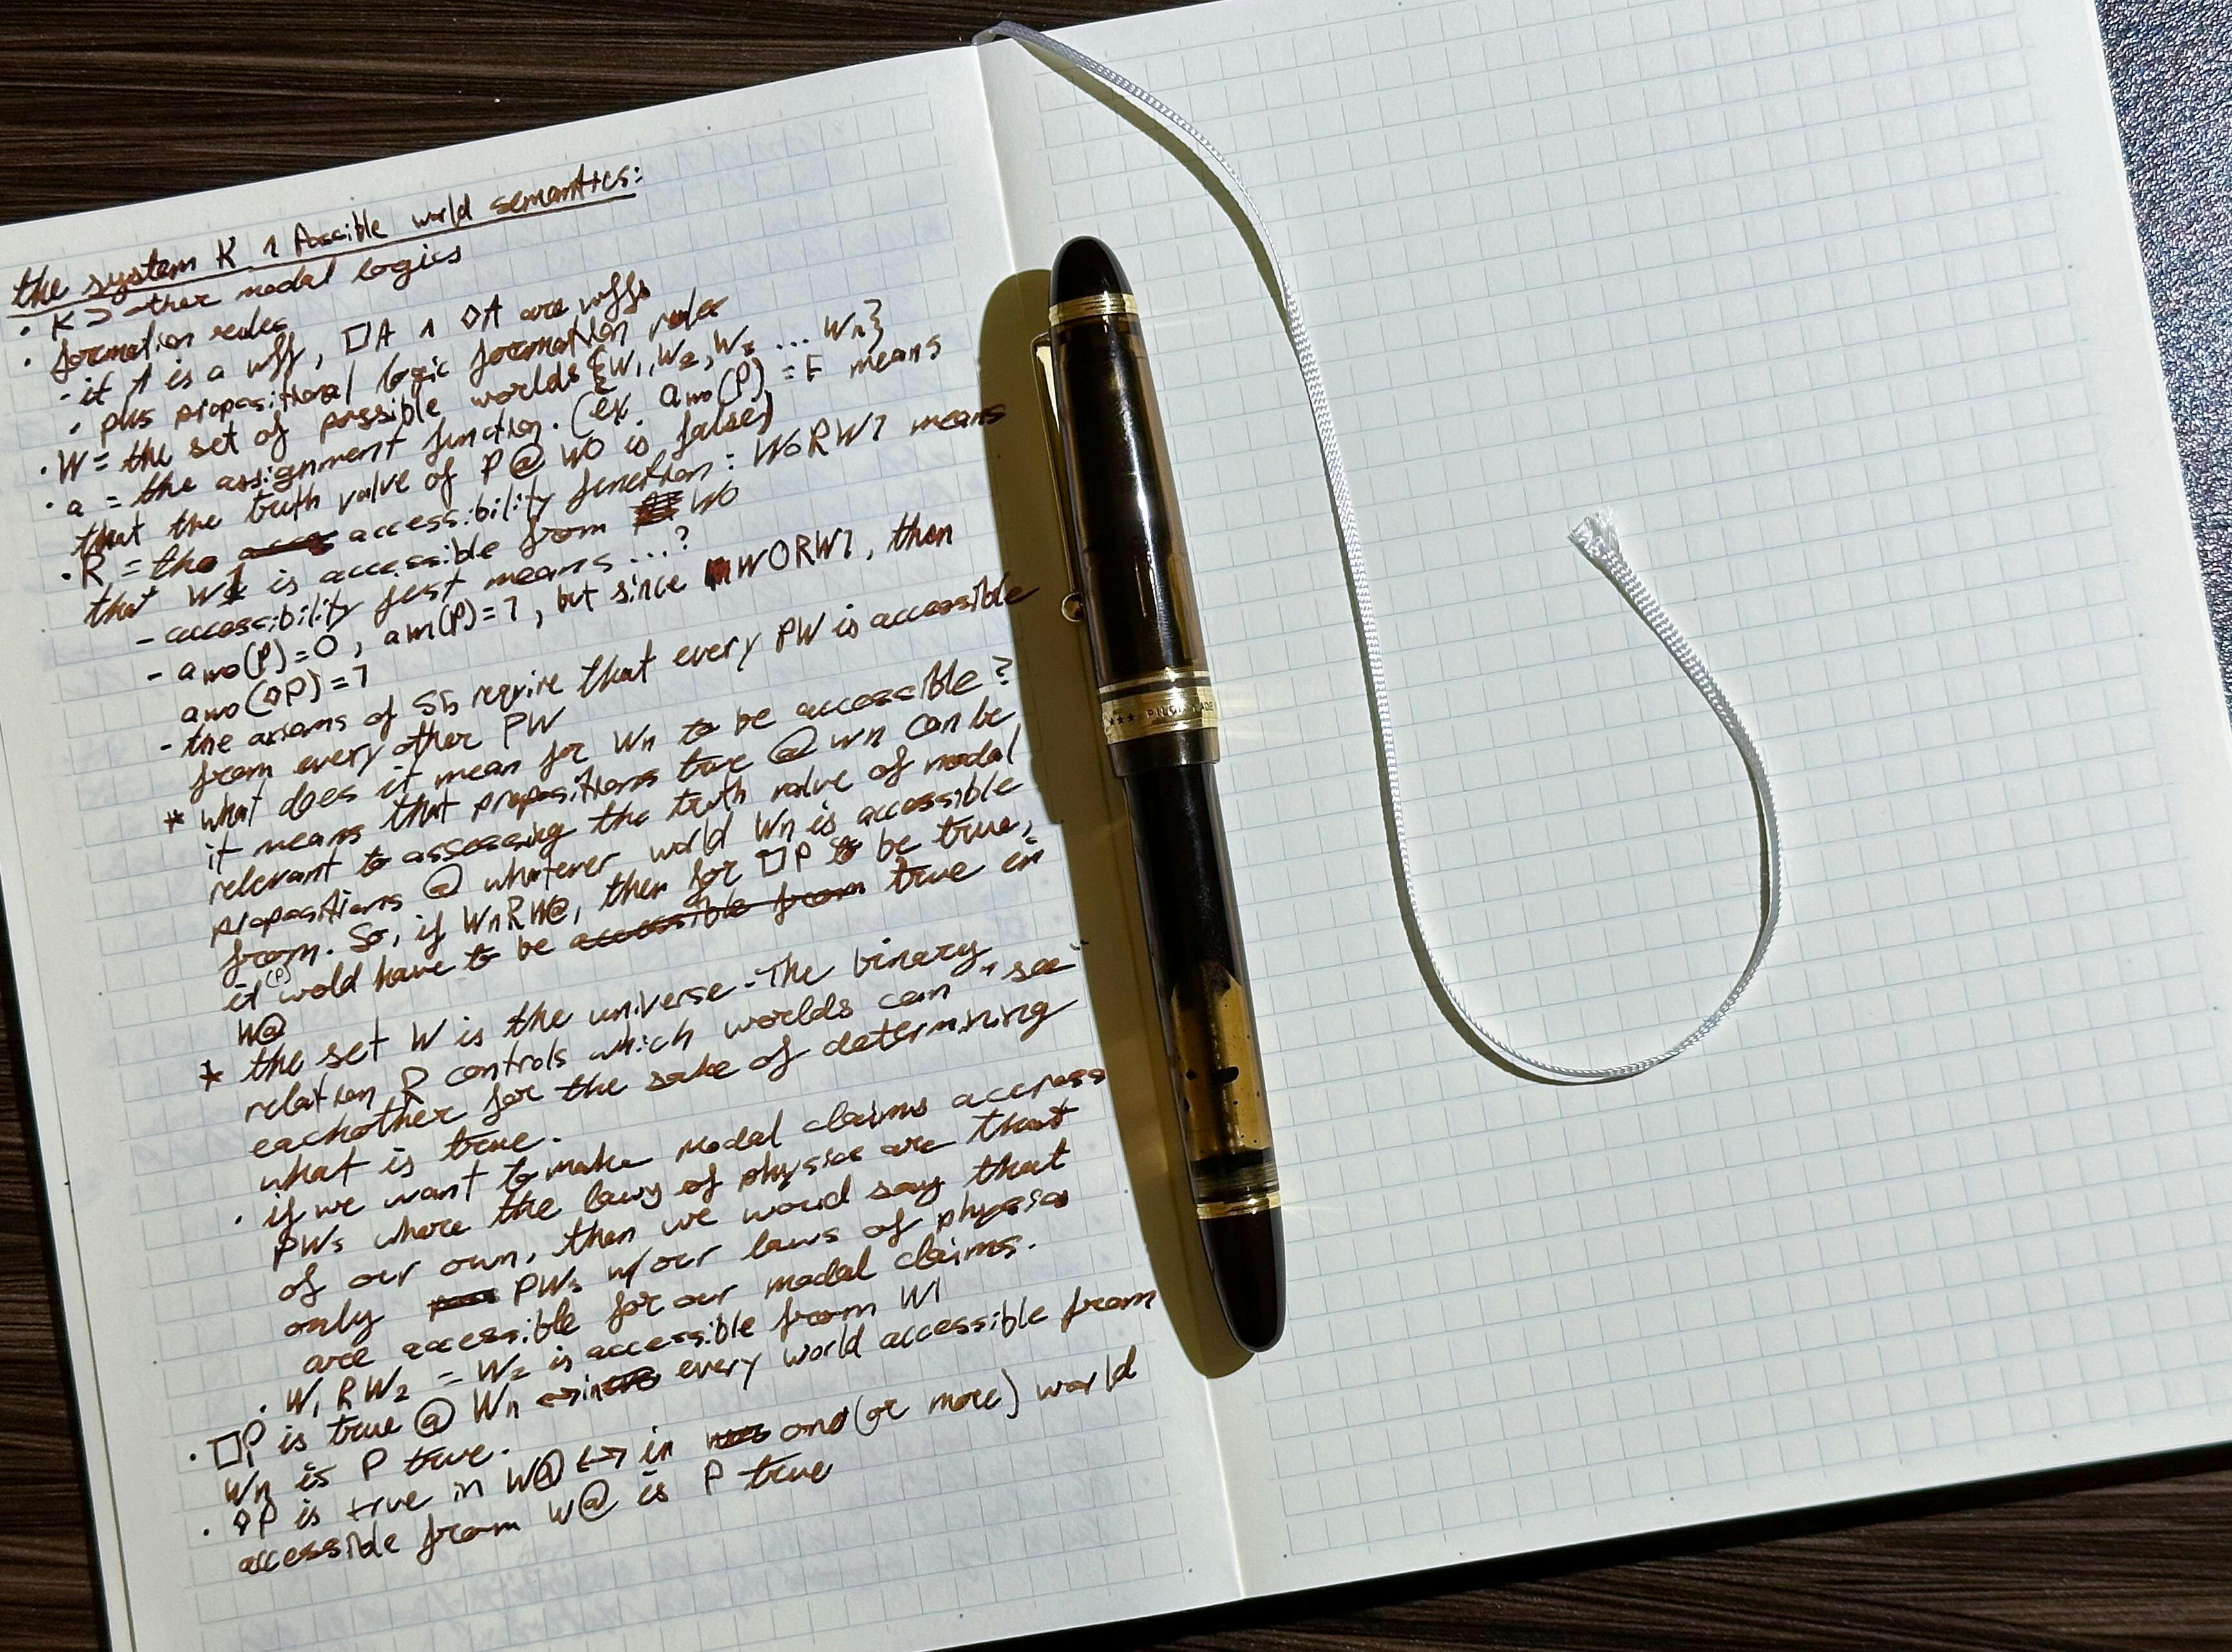 the system K ∧ Possible world semantics:
· K ⊃ other modal logics
· formation rules
- if A is a wff, □A ∧ ◇A are wffs
· plus propositional logic formation rules
· W = the set of possible worlds {W1, W2, W3 ... Wn}
· a = the assignment function. (ex. aw0(P) = F means
that the truth value of P @ W0 is false)
· R = the accessibility function: W0RW1 means
that W1 is accessible from W0
- accessibility just means ...?
- aw0(P)=0, aw1(P)=1, but since W0RW1, then
aw0(◇P)=1
- the axioms of S5 require that every PW is accessible
from every other PW
* what does it mean for Wn to be accessible?
it means that propositions true @ wn can be
relevant to assessing the truth value of modal
propositions @ whatever world Wn is accessible
from. So, if WnRW@, then for □P to be true,
it (P) wold have to be accessible from true in
W@
* the set W is the universe - The binary
relation R controls which worlds can "see"
eachother for the sake of determining
what is true.
· if we want to make modal claims accress
PWs where the laws of physics are that
of our own, then we would say that
only PWs w/our laws of physics
are accessible for our modal claims.
· W1RW2 = W2 is accessible from W1
· □P is true @ Wn ↔ in every world accessible from
Wn is P true.
· ◇P is true in W@ ↔ in one (or more) world
accessible from W@ is P true
*** PILOT MADE